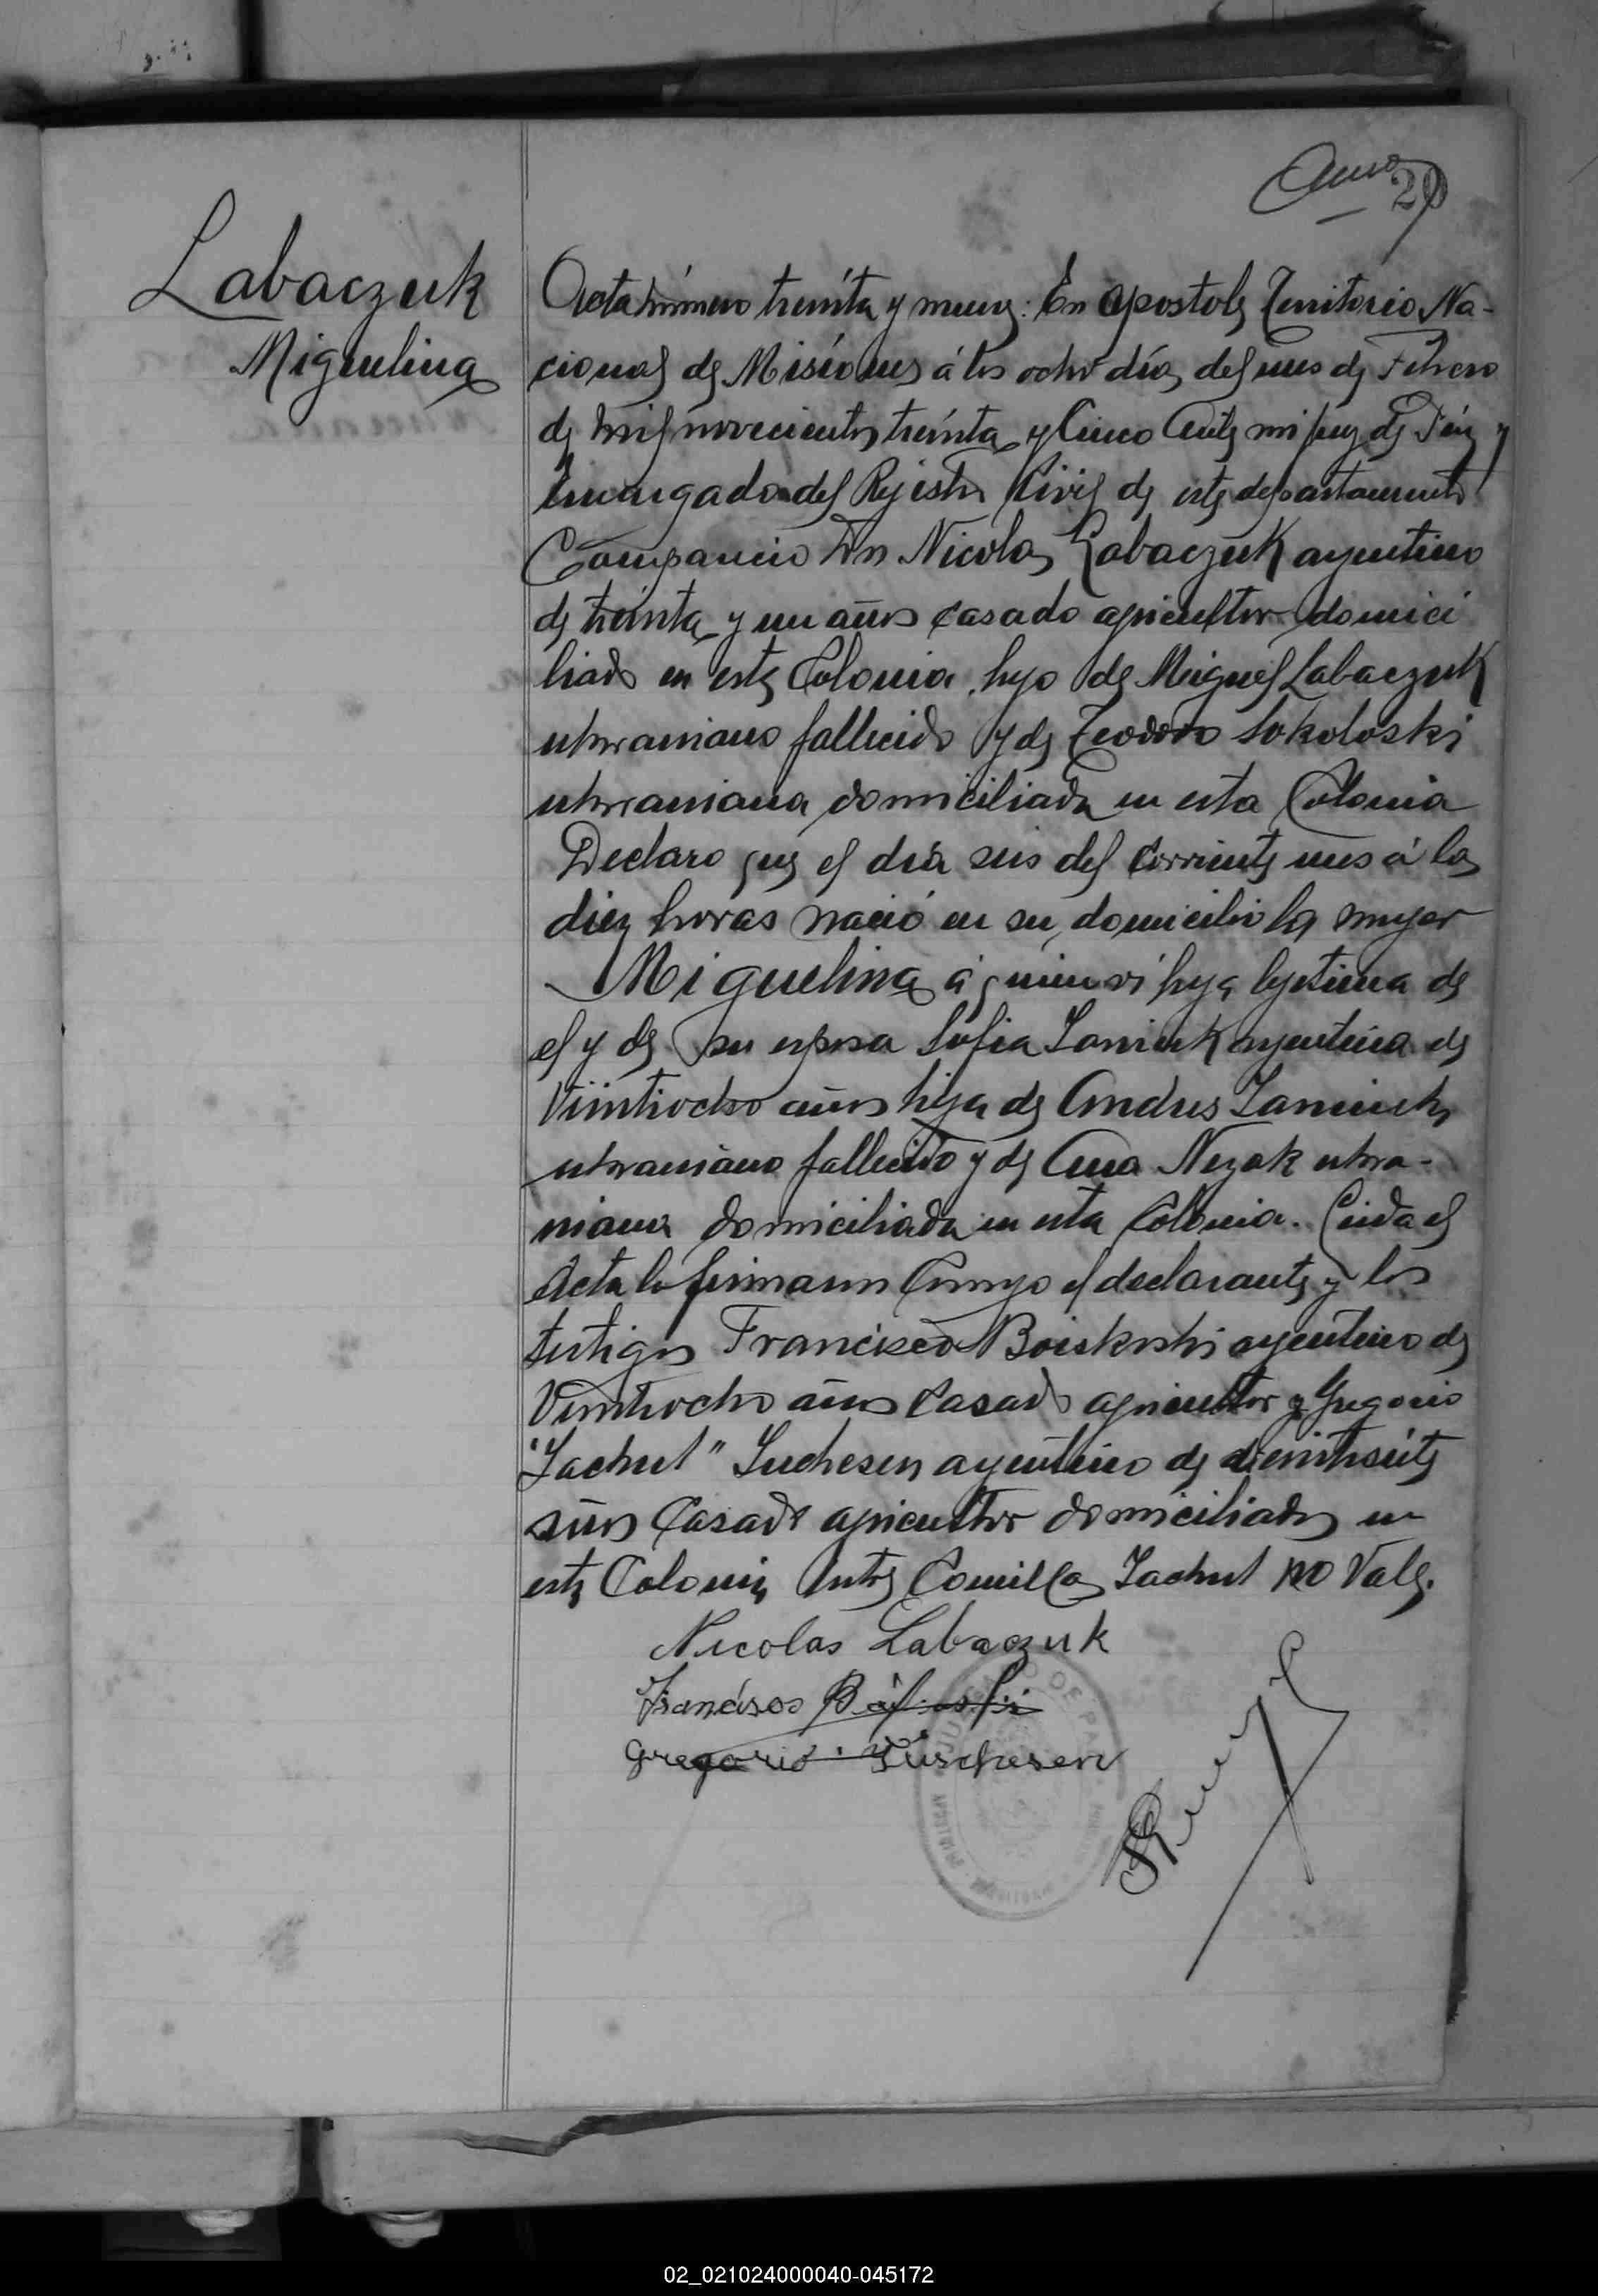 29
Labaczuk
Miguelina
Acta número treinta y nueve: En Apostoles Territorio Na-
cional de Misiones á los ocho días del mes de Febrero
de mil novecientos treinta y Cinco Ante mi Juez de Paz y
Encargado del Rejistro Civil de este departamento
Comparecio Dn Nicolas Labaczuk argentino
de treinta y un años casado agricultor domici
liado en esta Colonia hijo de Miguel Labaczuk
ukraniano fallecido y de Teodora Sokoloski
ukraniana domiciliada en esta Colonia
Declaro que el día seis del corriente mes á las
diez horas nació en su domicilio la mujer
Miguelina á quien vi hija lejitima de
el y de su esposa Sofia Laniuk argentina de
Veintiocho años hija de Andres Laniuk
ukraniano fallecido y de Ana Nezak ukra-
niana domiciliada en esta Colonia. Leida el
Acta la firmaron Conmigo el declarante y los
testigos Francisco Boiskoski argentino de
Veintiocho años Casado agricultor y Gregorio
"Lachut" Luchesen argentino de veintisiete
años Casado agricultor domiciliados en
esta Colonia Entre Comillas Lachut no Vale.
Nicolas Labaczuk
Francisco
Gregorio Luschesen